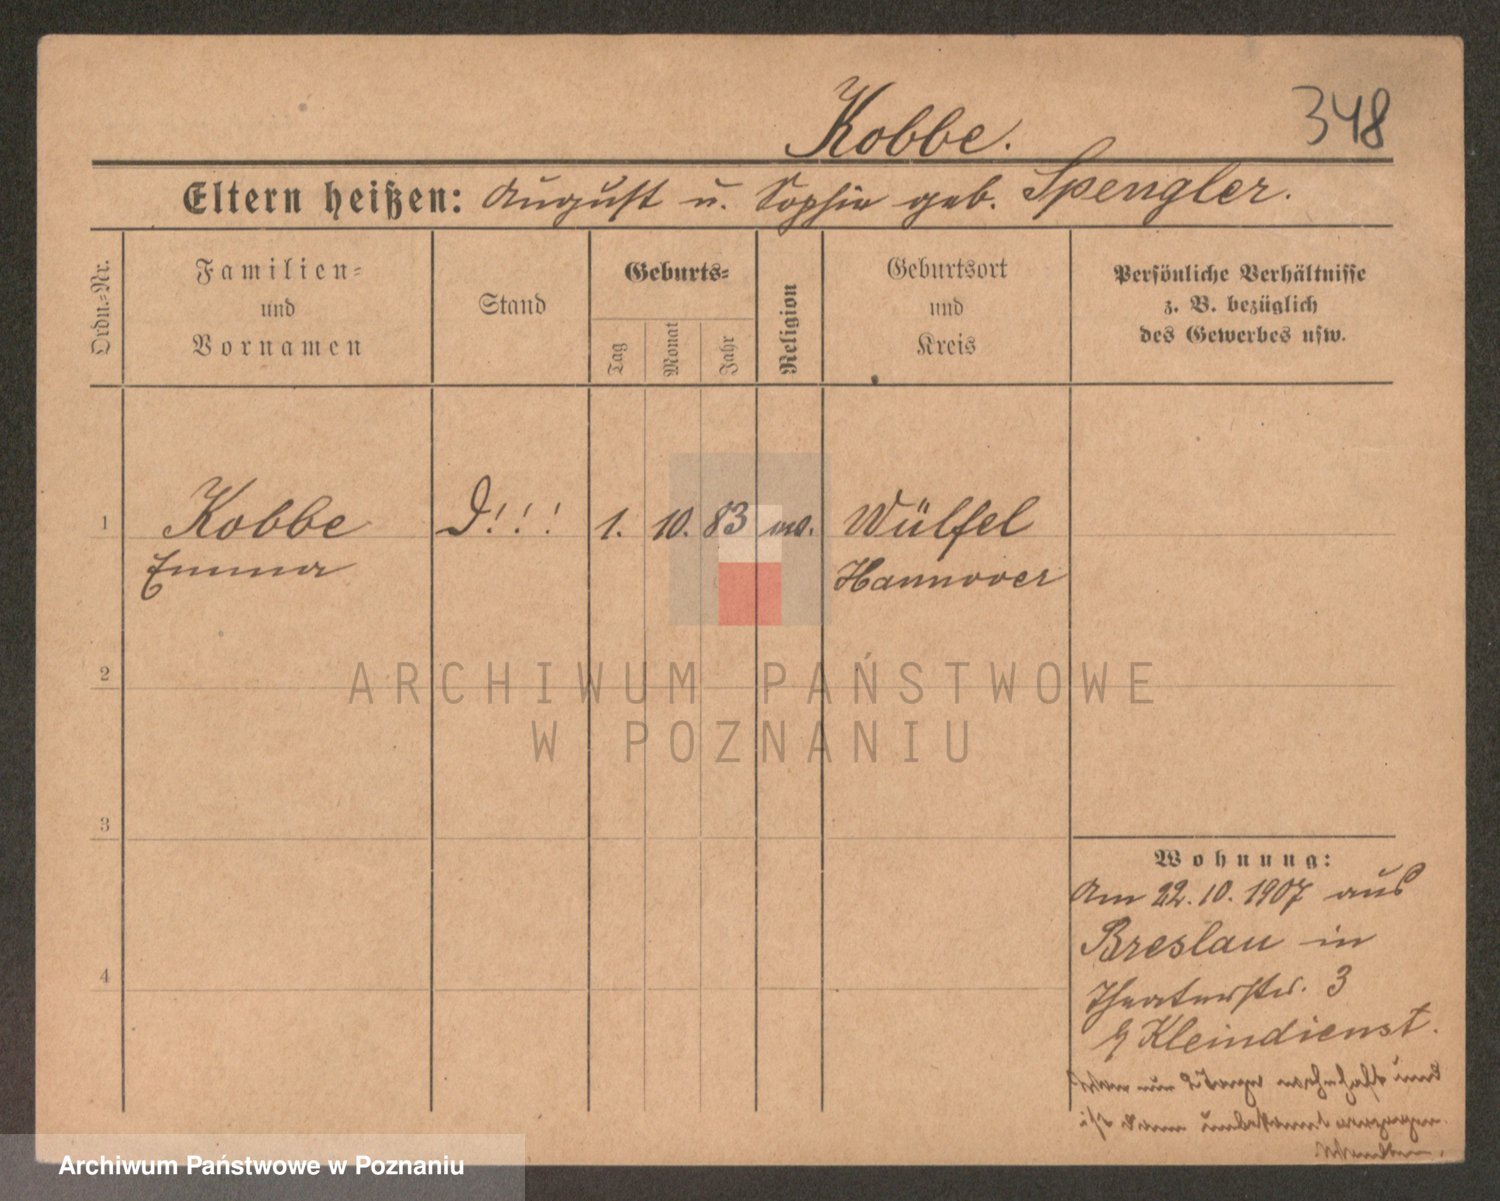 348
Kobbe.
Eltern heißen: August u. Sophie geb. Spengler.
Ordn.-Nr.
Familien-
und
Vornamen
Stand
Geburts-
Tag
Monat
Jahr
Religion
Geburtsort
und
Kreis
Persönliche Verhältnisse
z. B. bezüglich
des Gewerbes usw.
1 Kobbe D!!! 1. 10. 83 Wülfel
Emma Hannover
2
3
4
Wohnung:
Am 22.10.1907 aus
Breslau in
Theaterstr. 3
Kleindienst.
nur 2 Tage
und
ist dann unbekannt
ARCHIWUM PAŃSTWOWE
W POZNANIU
Archiwum Państwowe w Poznaniu